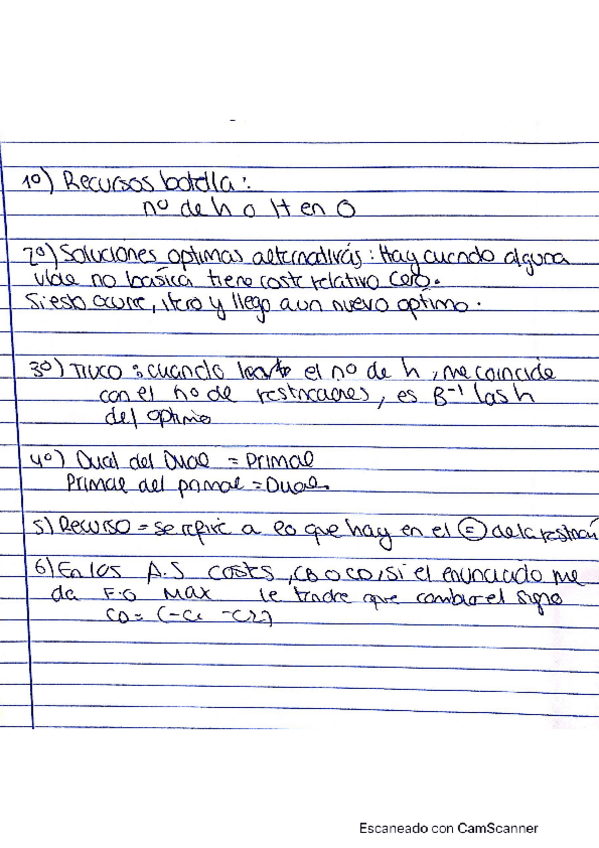 1º) Recursos botella:
nº de h o H en 0
2º) Soluciones optimas alternativas: Hay cuando alguna
vble no básica tiene coste relativo cero.
Si esto ocurre, itero y llego a un nuevo optimo.
3º) Truco: cuando el nº de h, me coincide
con el no de restricciones, es B-1 las h
del optimo
4º) Dual del Dual = Primal
Primal del primal = Dual.
5) Recurso = se refiere a lo que hay en el = de la
6) En los A.S costes, CB o CD, si el enunciado me
da F.O MAX le tendre que cambiar el signo
CD = (-C1 -C2)
Escaneado con CamScanner